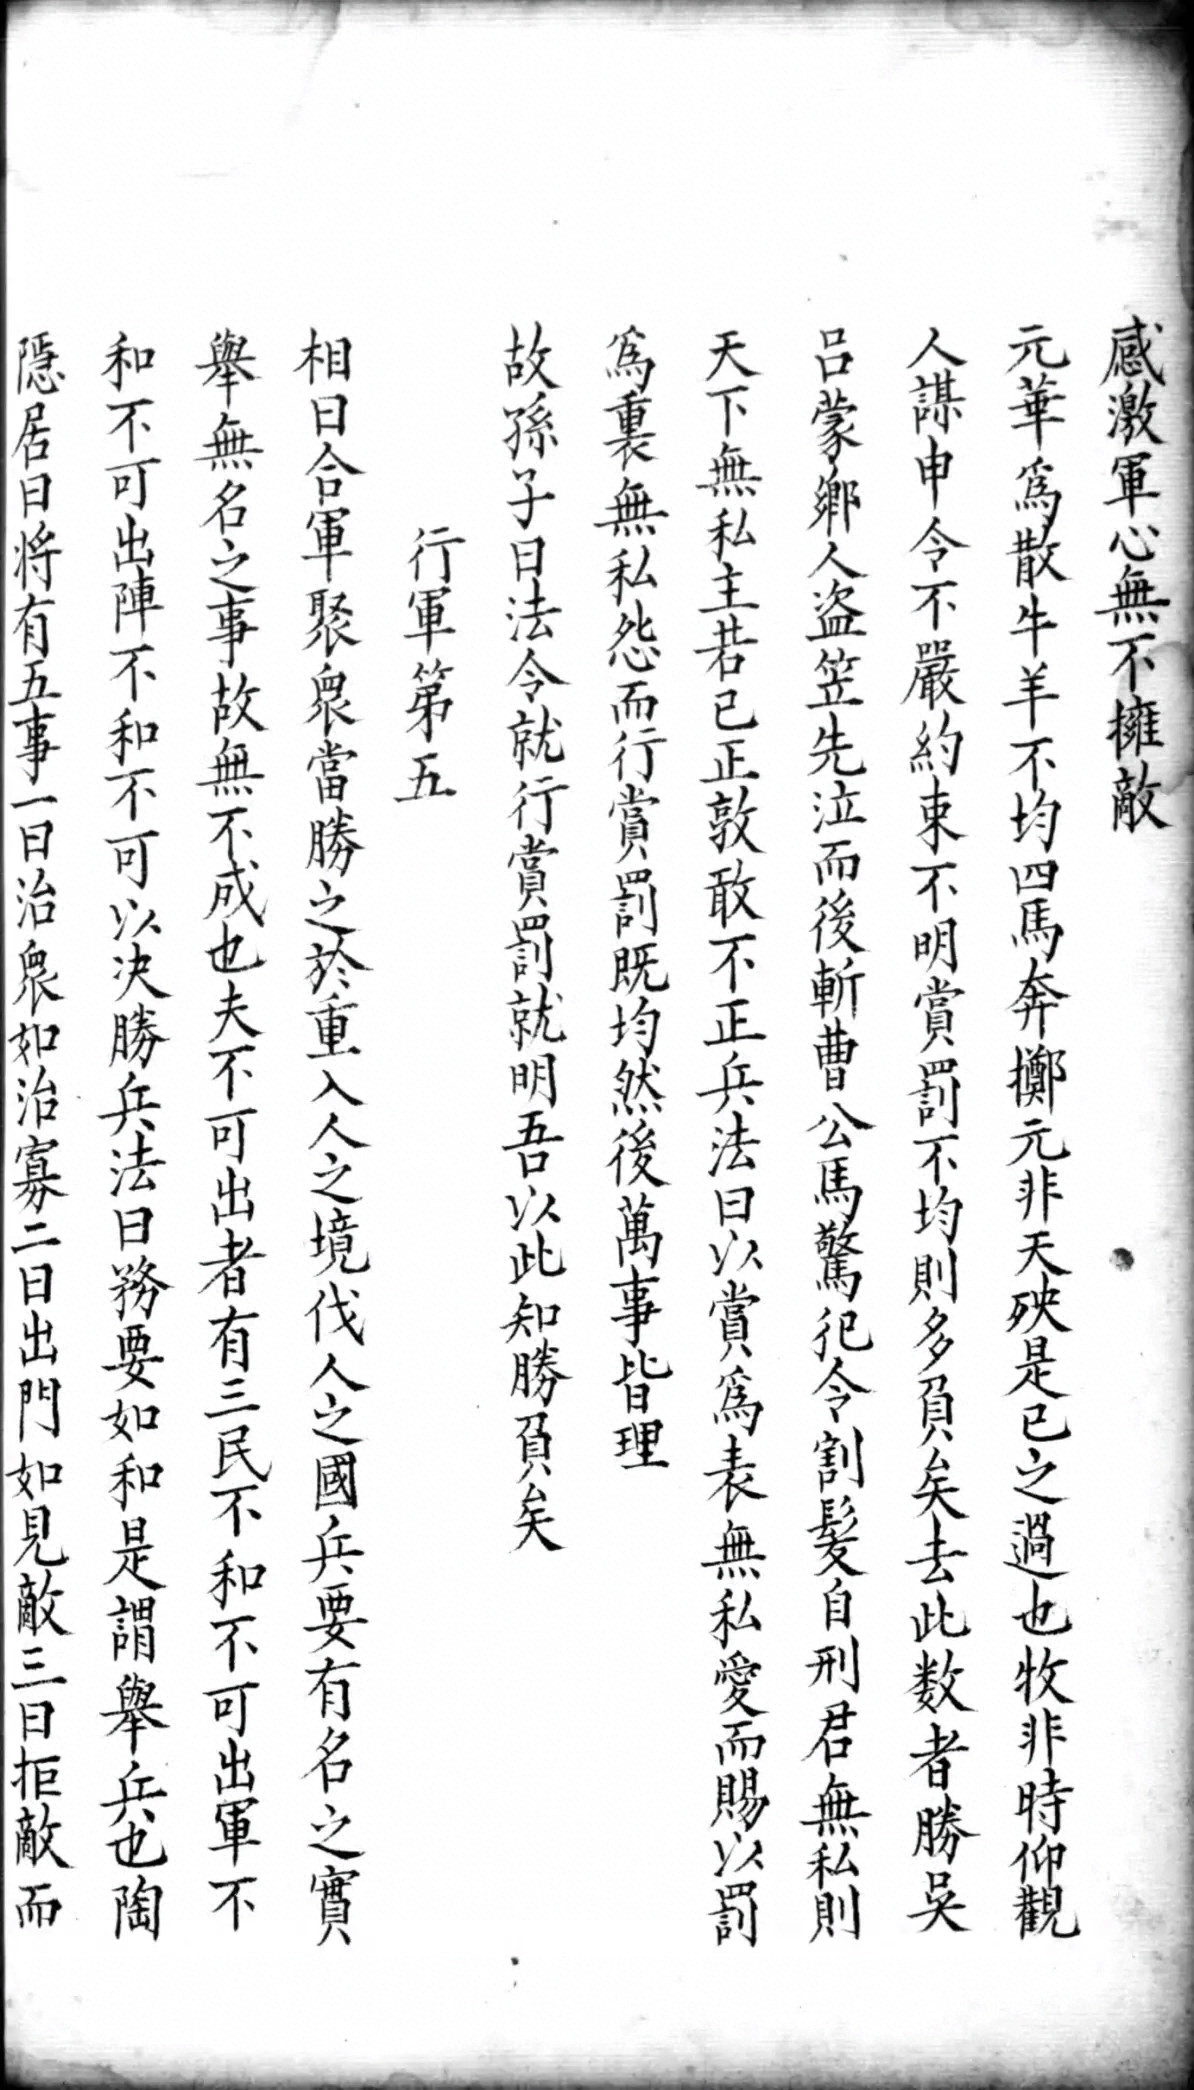 感激軍心無不擁敵
元華爲散牛羊不均四馬奔擲元非天殃是已之過也牧非時仰觀
人謀申令不嚴約束不明賞罰不均則多負矣去此数者勝吳
吕蒙鄉人盗笠先泣而後斬曹公馬驚犯令割髮自刑君無私則
天下無私主若已正敦敢不正兵法曰以賞爲表無私愛而賜以罰
爲裏無私怨而行賞罰既均然後萬事皆理
故孫子曰法令就行賞罰就明吾以此知勝負矣
行軍第五
相曰合軍聚衆當勝之於重入人之境伐人之國兵要有名之實
舉無名之事故無不成也夫不可出者有三民不和不可出軍不
和不可出陣不和不可以决勝兵法曰務要如和是謂舉兵也陶
隱居曰将有五事一曰治衆如治寡二曰出門如見敵三曰拒敵而